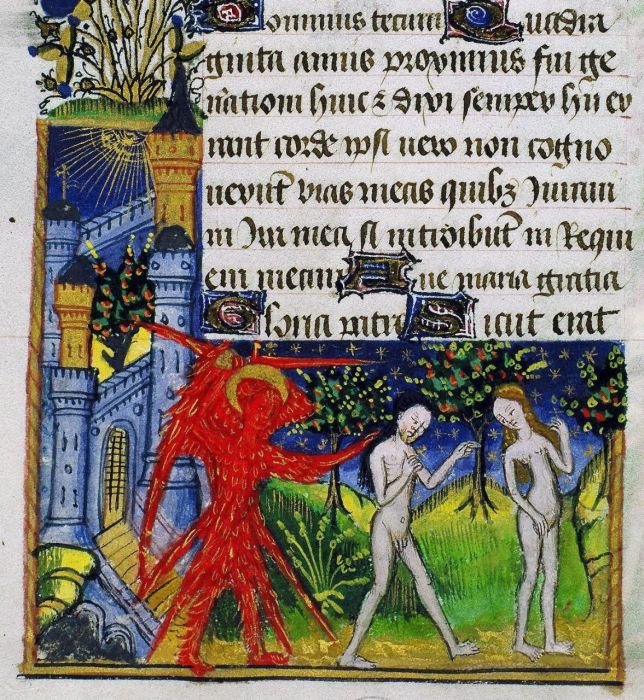 Dominus tecum Quadra
ginta annis proximus fui ge
n̄ationi huic & dixi semper hii er
rant corde ipsi vero non cogno
verūt vias meas quibꝫ iuravi
in ira mea si introibūt in Requi
em meam Ave maria gratia
Gloria patri Sicut erat